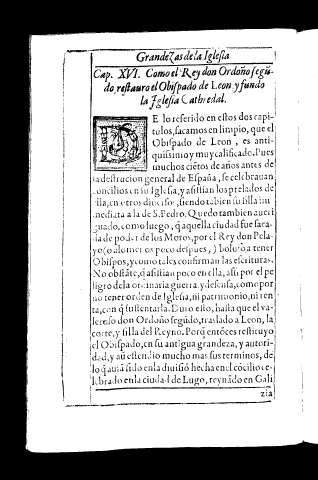 Grandezas de la Iglesia
Cap. XVI. Como el Rey don Ordoño segũ-
do, restauro el Obispado de Leon, y fundo
la Iglesia Cathedral.
DE lo referido en estos dos capi-
tulos, sacamos en limpio, que el
Obispado de Leon, es anti-
quissimo y muy calificado. Pues
muchos ciẽtos de años antes de
la destrucion general de España, se celebrauan
concilios en su Iglesia, y assistian los prelados de
ella, en otros diocesis, siendo tabien su silla im-
mediata a la de S. Pedro. Quedo tambien aueri
guado, como luego, q̃ aquella ciudad fue saca-
da de poder de los Moros, por el Rey don Pela-
yo (o alomenos poco despues,) boluio a tener
Obispos, y como tales confirman las escrituras.
No obstãte, q̃ assistian poco en ella, assi por el pe
ligro de la ordinaria guerra, y defensa, como por
no tener orden de Iglesia, ni patrimonio, ni ren
ta, con q̃ sustentarla. Duro esto, hasta que el va-
leroso don Ordoño segũdo, traslado a Leon, la
corte, y silla del Reyno. Porq̃ entõces restituyo
el Obispado, en su antigua grandeza, y autori-
dad, y aũ estendio mucho mas sus terminos, de
lo q̃ auiã sido en la diuisiõ hecha en el cõcilio ce-
lebrado en la ciudad de Lugo, reynãdo en Gali
zia